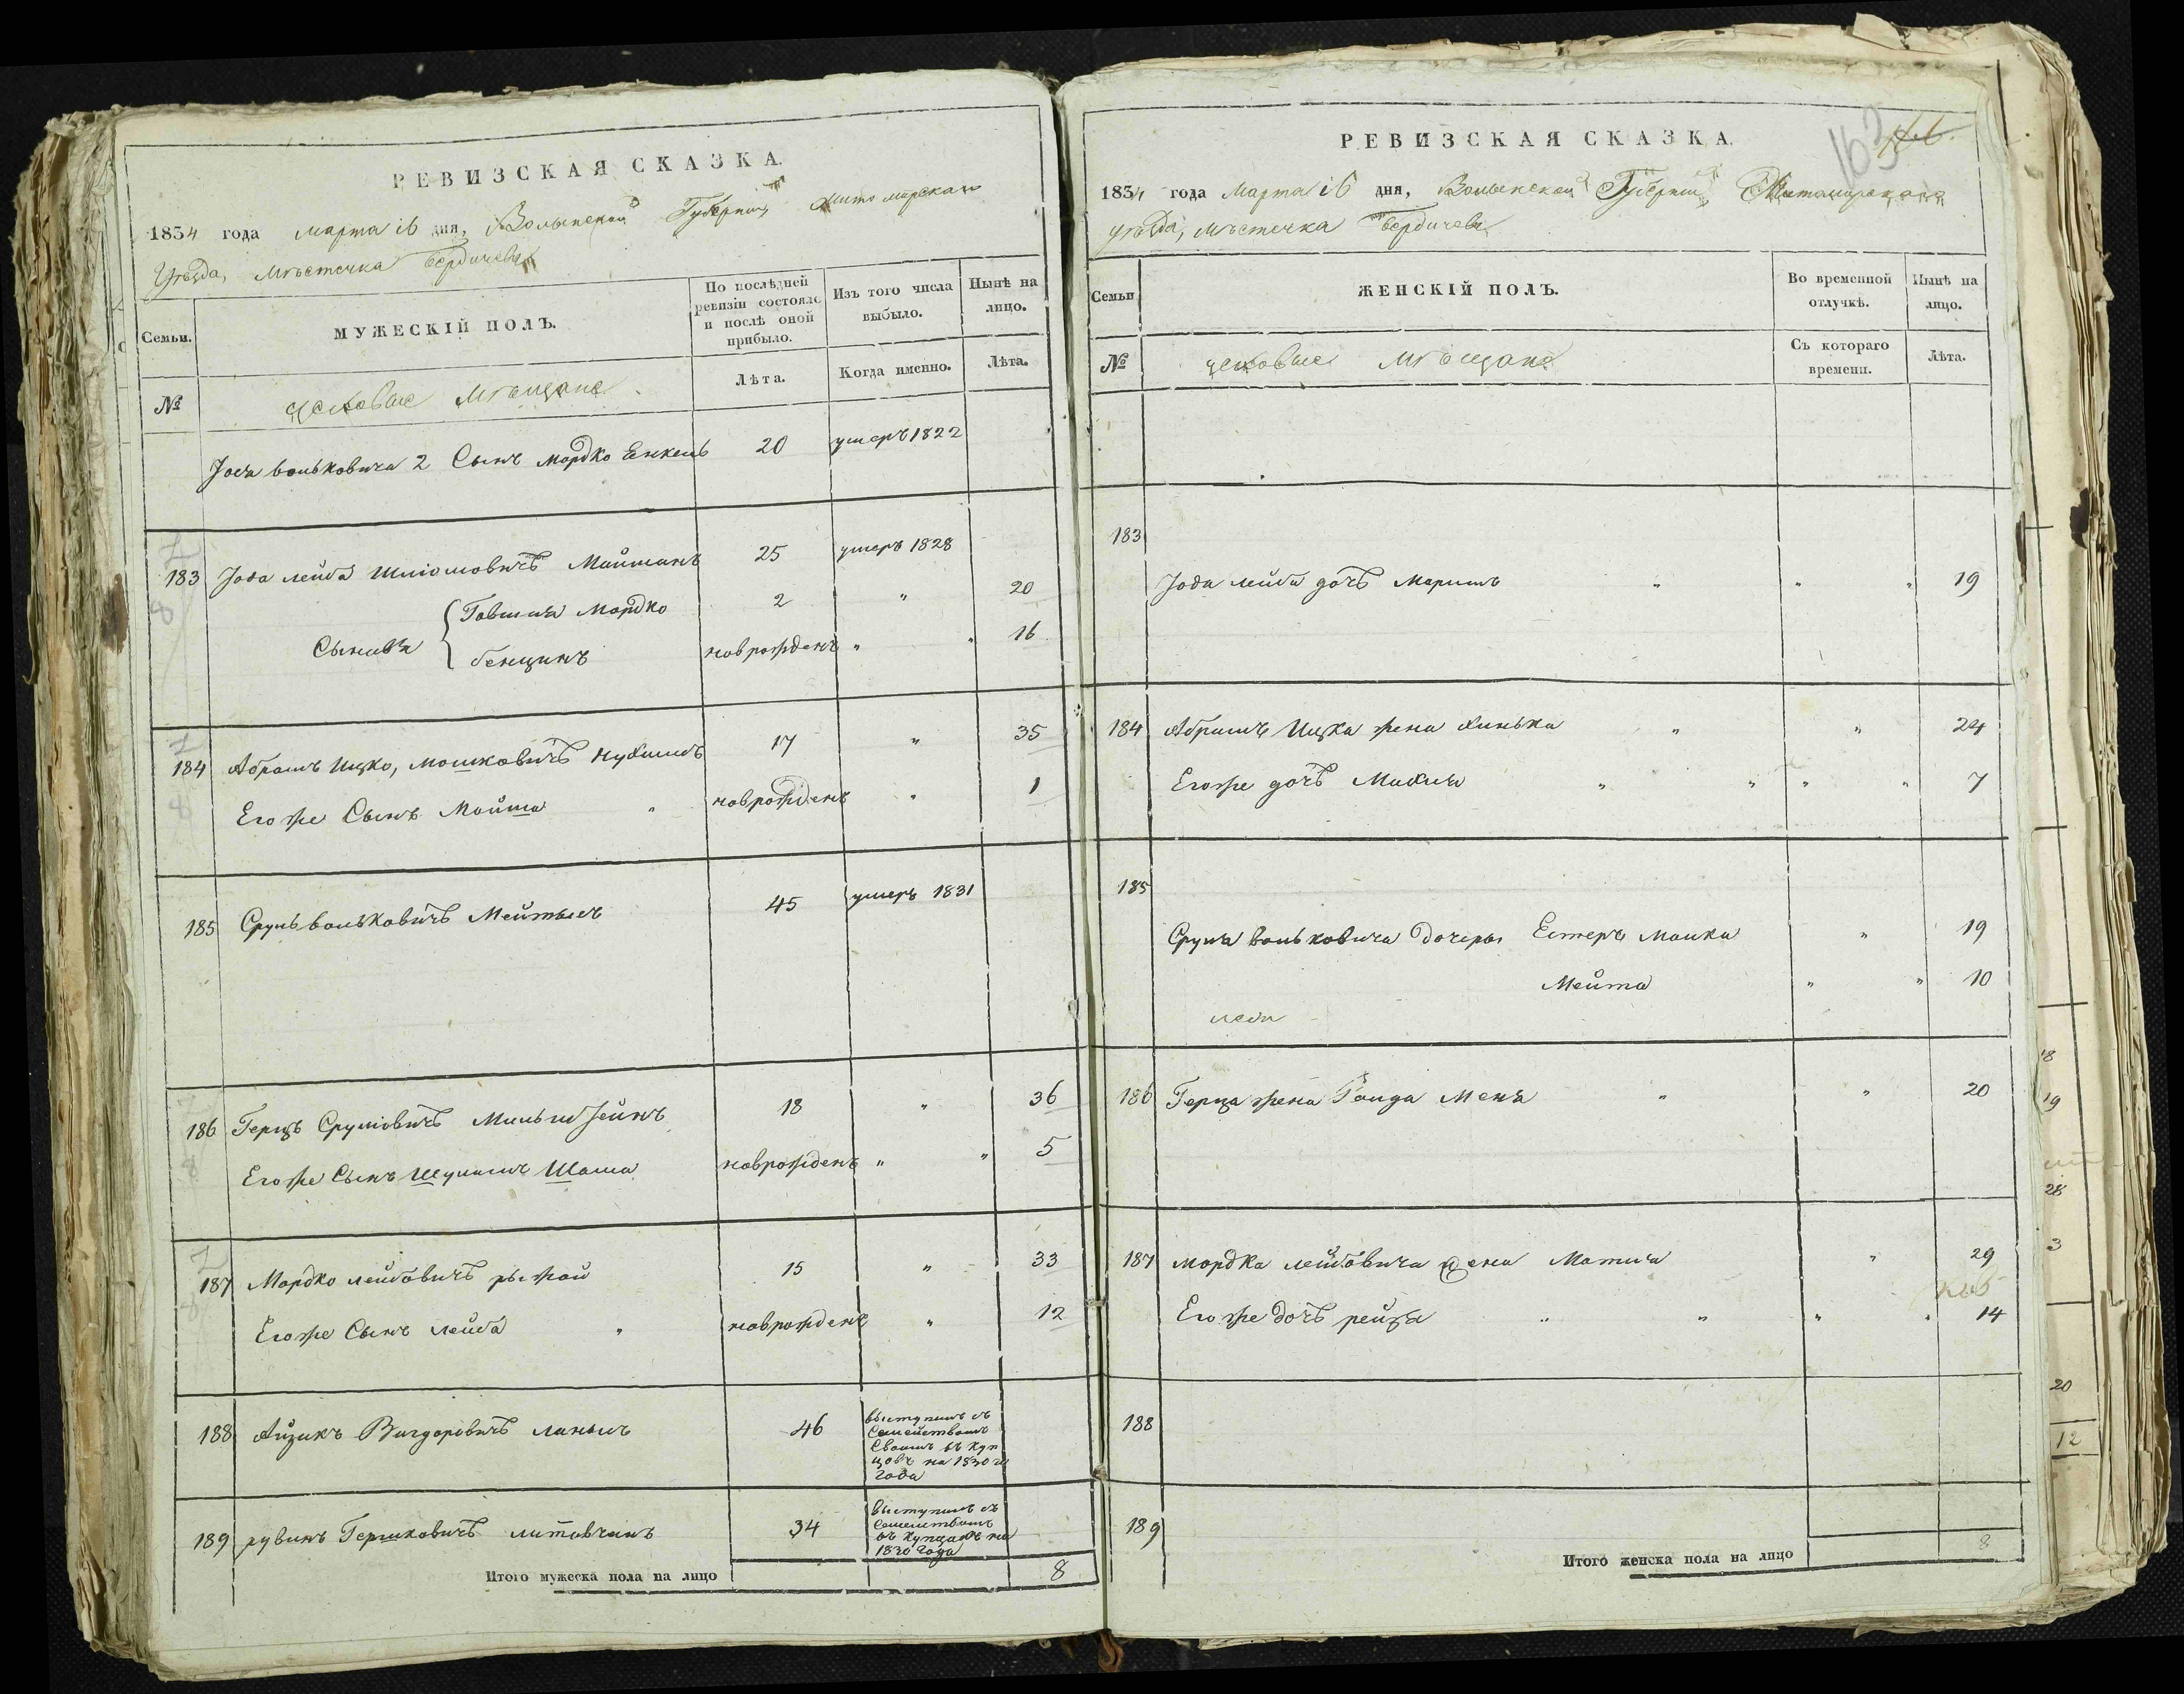 РЕВИЗСКАЯ СКАЗКА.
1834 года марта 16 дня, Волынской Губернии Житомирскаго
Уѣзда, мѣстечка Бердичева
Семьи.
МУЖЕСКІЙ ПОЛЪ.
По послѣдней ревизіи состояло и послѣ оной прибыло.
Изъ того числа выбыло.
Нынѣ на лицо.
№
цеховые мѣщане
Лѣта.
Когда именно.
Лѣта.
Іося Вольковича 2 Сынъ Мордко Енкель 20 умеръ 1822
183 Іова лейба Шліомовичъ Майтанъ 25 умеръ 1828
Сыновья
Говшия Мордко 2 " 20
бенционъ новрожденъ " " 16
184 Абрамъ Ицко, Мошковичъ Нухимъ 17 " 35
Его же Сынъ Мойша " новрожденъ " 1
185 Сруль вольковичъ Мейтысъ 45 умеръ 1831
186 Герцъ Сруліовичъ 18 " 36
Его же Сынъ Шулимъ Шама новрожденъ " " 5
187 Мордко лейбовичъ рыжой 15 " 33
Его же Сынъ лейба " новрожденъ " 12
188 Айзикъ Вигдоровичъ 46 выступилъ съ
Семействомъ
Своимъ въ куп
цовъ на 1830й
года
189 рувинъ Гершковичъ литовчинъ 34 выступилъ съ
Семействомъ
въ купцовъ на
1830 года
Итого мужеска пола на лицо 8
РЕВИЗСКАЯ СКАЗКА.
163
1834 года Марта 16 дня, Волынской Губернии, Житомирскаго
уѣзда, мѣстечка Бердичева
Семьи
ЖЕНСКІЙ ПОЛЪ.
Во временной отлучкѣ.
Нынѣ на лицо.
№
цеховые мѣщане
Съ котораго времени.
Лѣта.
183
Іова лейба дочь Маримъ " " " 19
184 Абрамъ Ицка жена Хинька " " 24
Его же дочь Михля " " " " 7
185
Сруля вольковича дочеры Естеръ Малка " 19
Мейта " " 10
186 Герца жена Гоида Меня " " 20
187 мордка лейбовича жена Мотля " 29
Его же дочь рейза " " " " 14
188
189
Итого женска пола на лицо 8